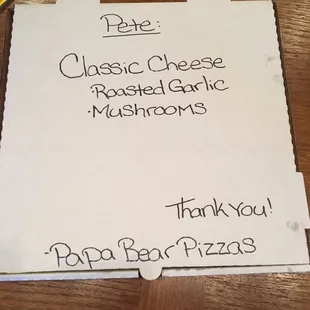 Pete:
Classic Cheese
·Roasted Garlic
·Mushrooms
Thank You!
-Papa Bear Pizzas